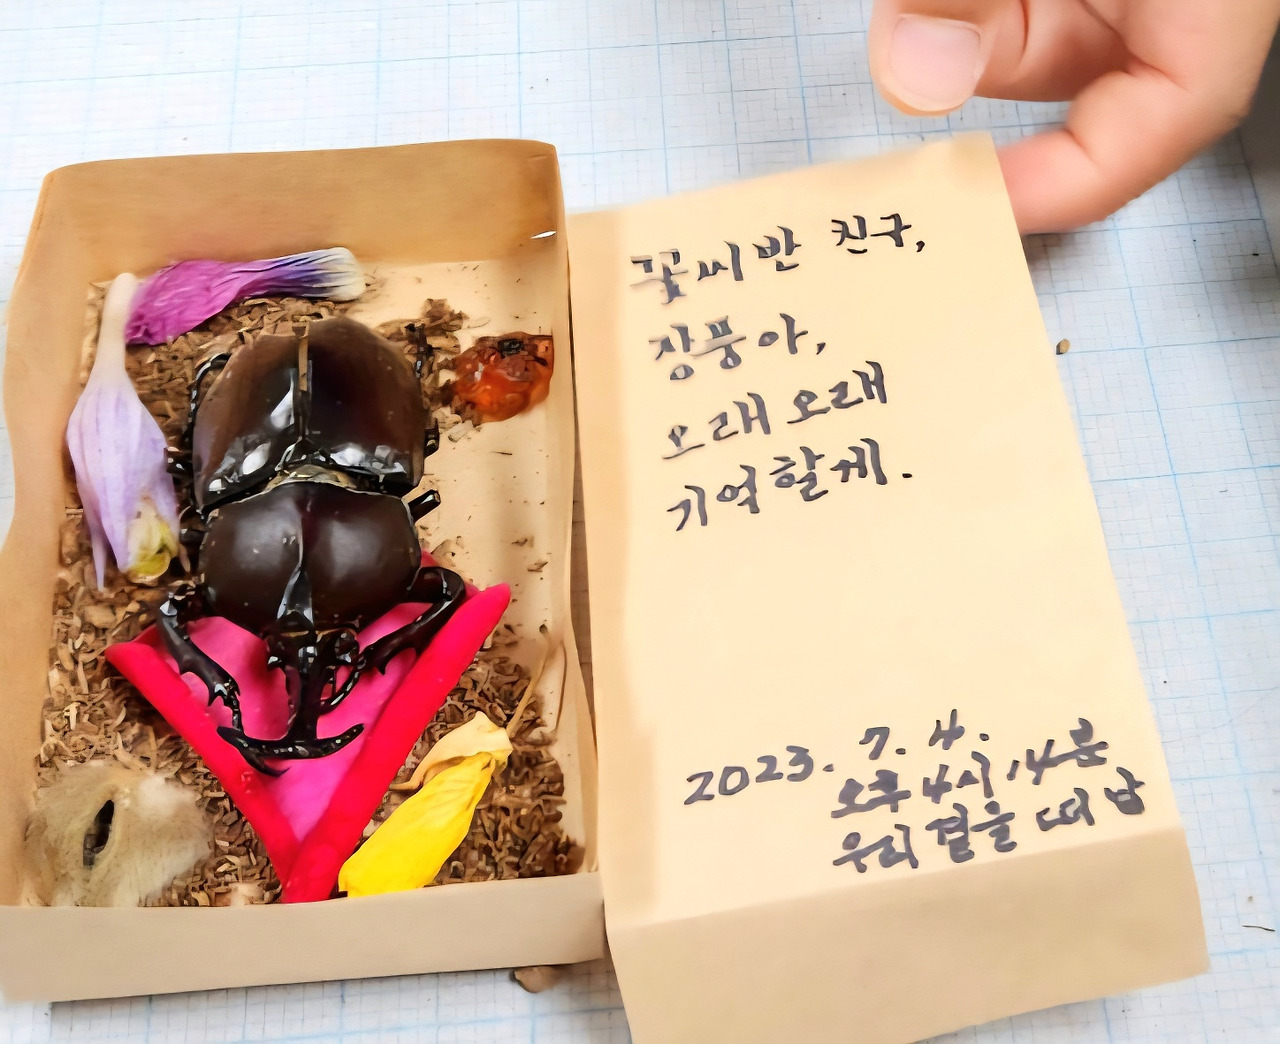 꽃씨반 친구,
장풍아,
오래오래
기억할게.
2023. 7. 4.
오후 4시 14분
우리 곁을 떠남